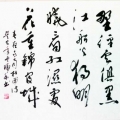 野徑雲俱黑
江船火獨明
曉看紅濕處
花重錦官城